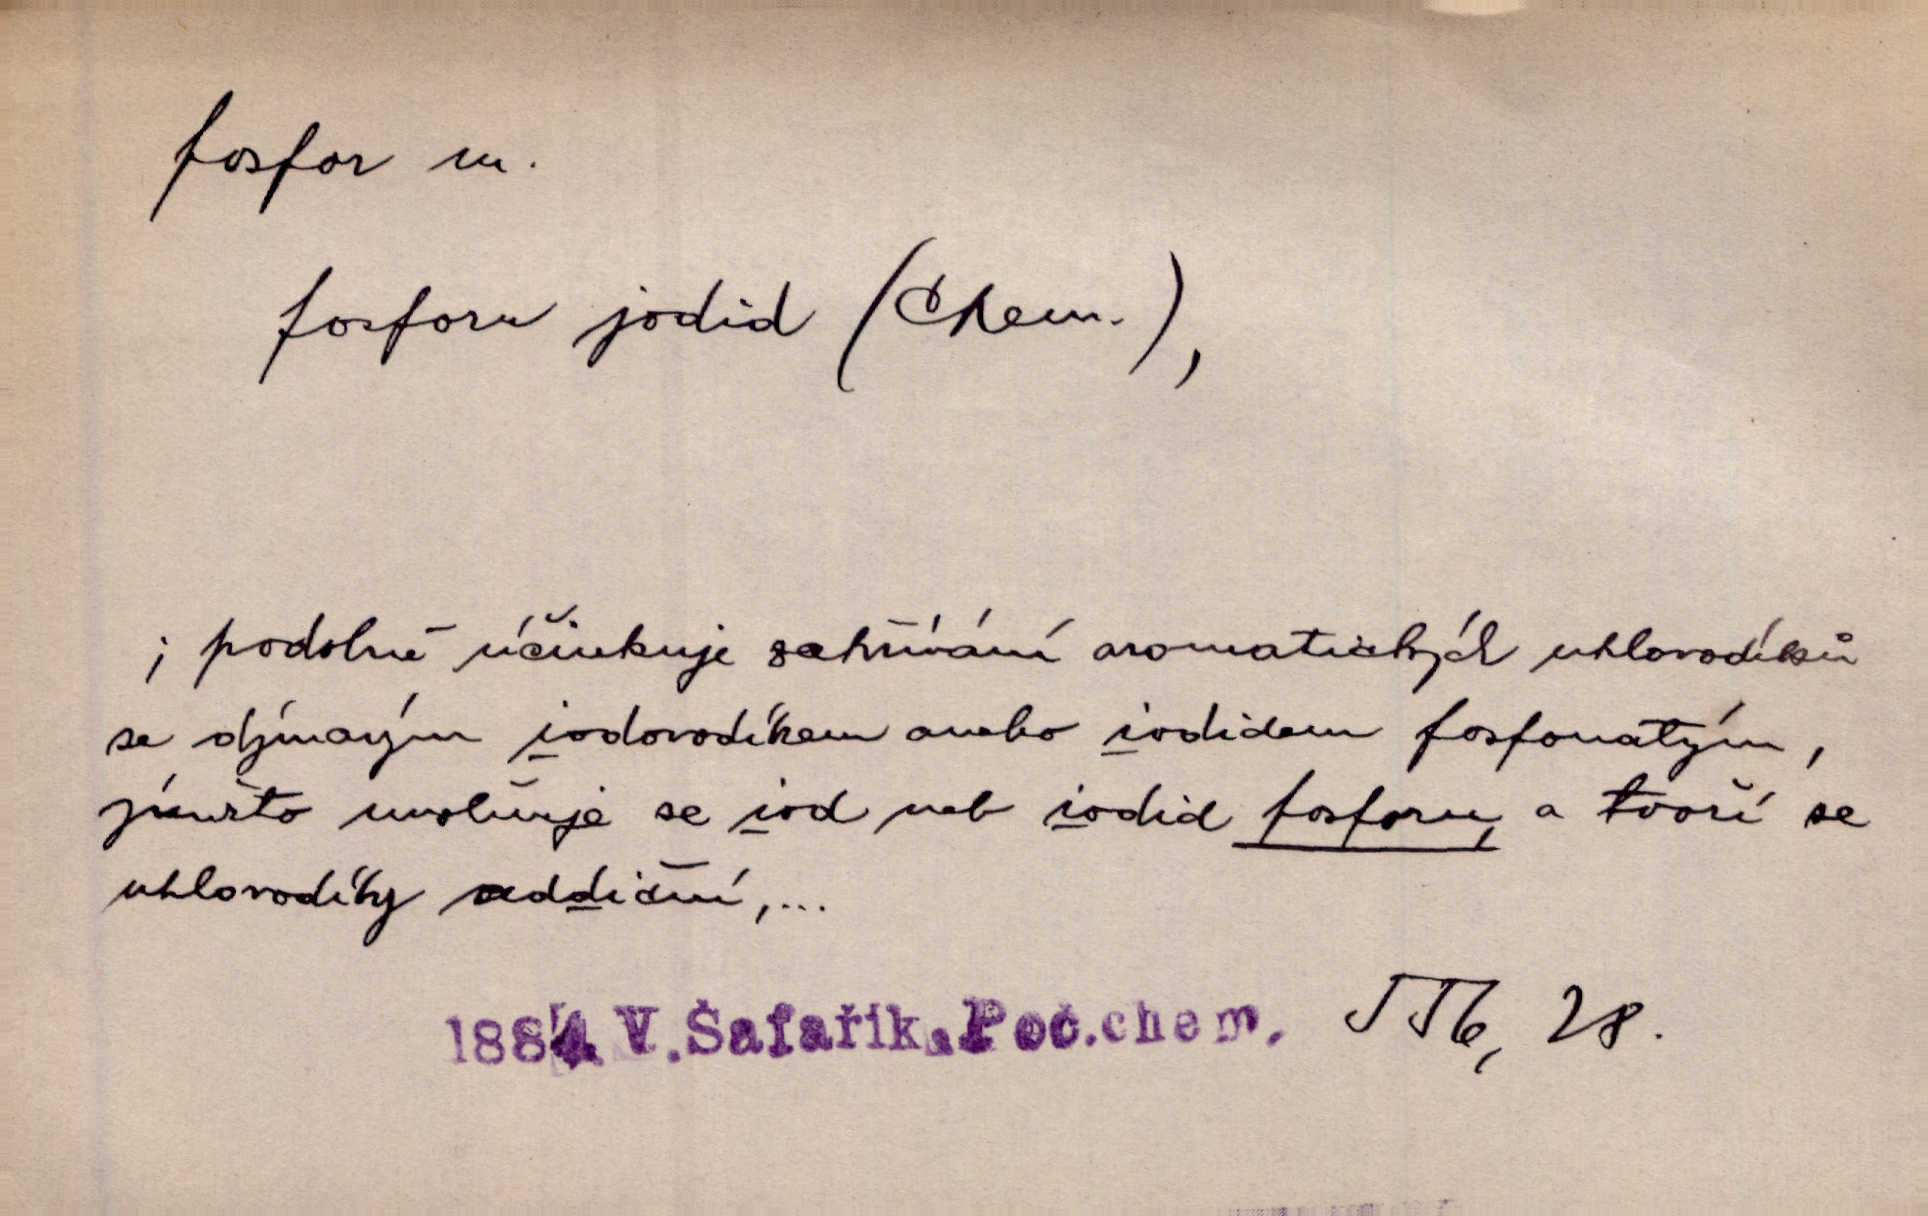 fosfor m.
fosforu jodid (Chem.),
; podobně účinkuje zahřívání aromatických uhlovodíků
se dýmavým iodovodíkem anebo iodidem fosfonatým,
jímžto uvolňuje se iod neb iodid fosforu, a tvoří se
uhlovodíky addiční,...
1884 V. Šafařík. Poč. chem. II b, 28.